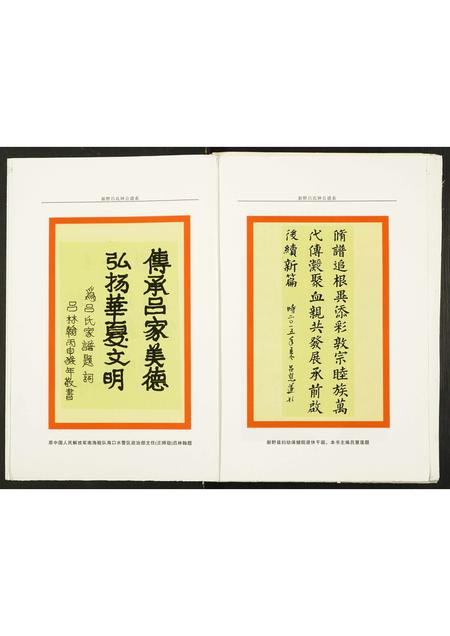 新野吕氏钟谷谱系
傳承吕家美德
弘扬華夏文明
為吕氏家譜題詞
吕林翰丙申猴年敬書
原中国人民解放军南海舰队海口水警区政治部主任(正师级)吕林翰题
新野吕氏钟谷谱系
脩譜追根異添彩敦宗睦族萬
代傳凝聚血親共發展承前啟
後續新篇
時二〇一五年
新野县妇幼保健院退休干部、本书主编吕慧莲题